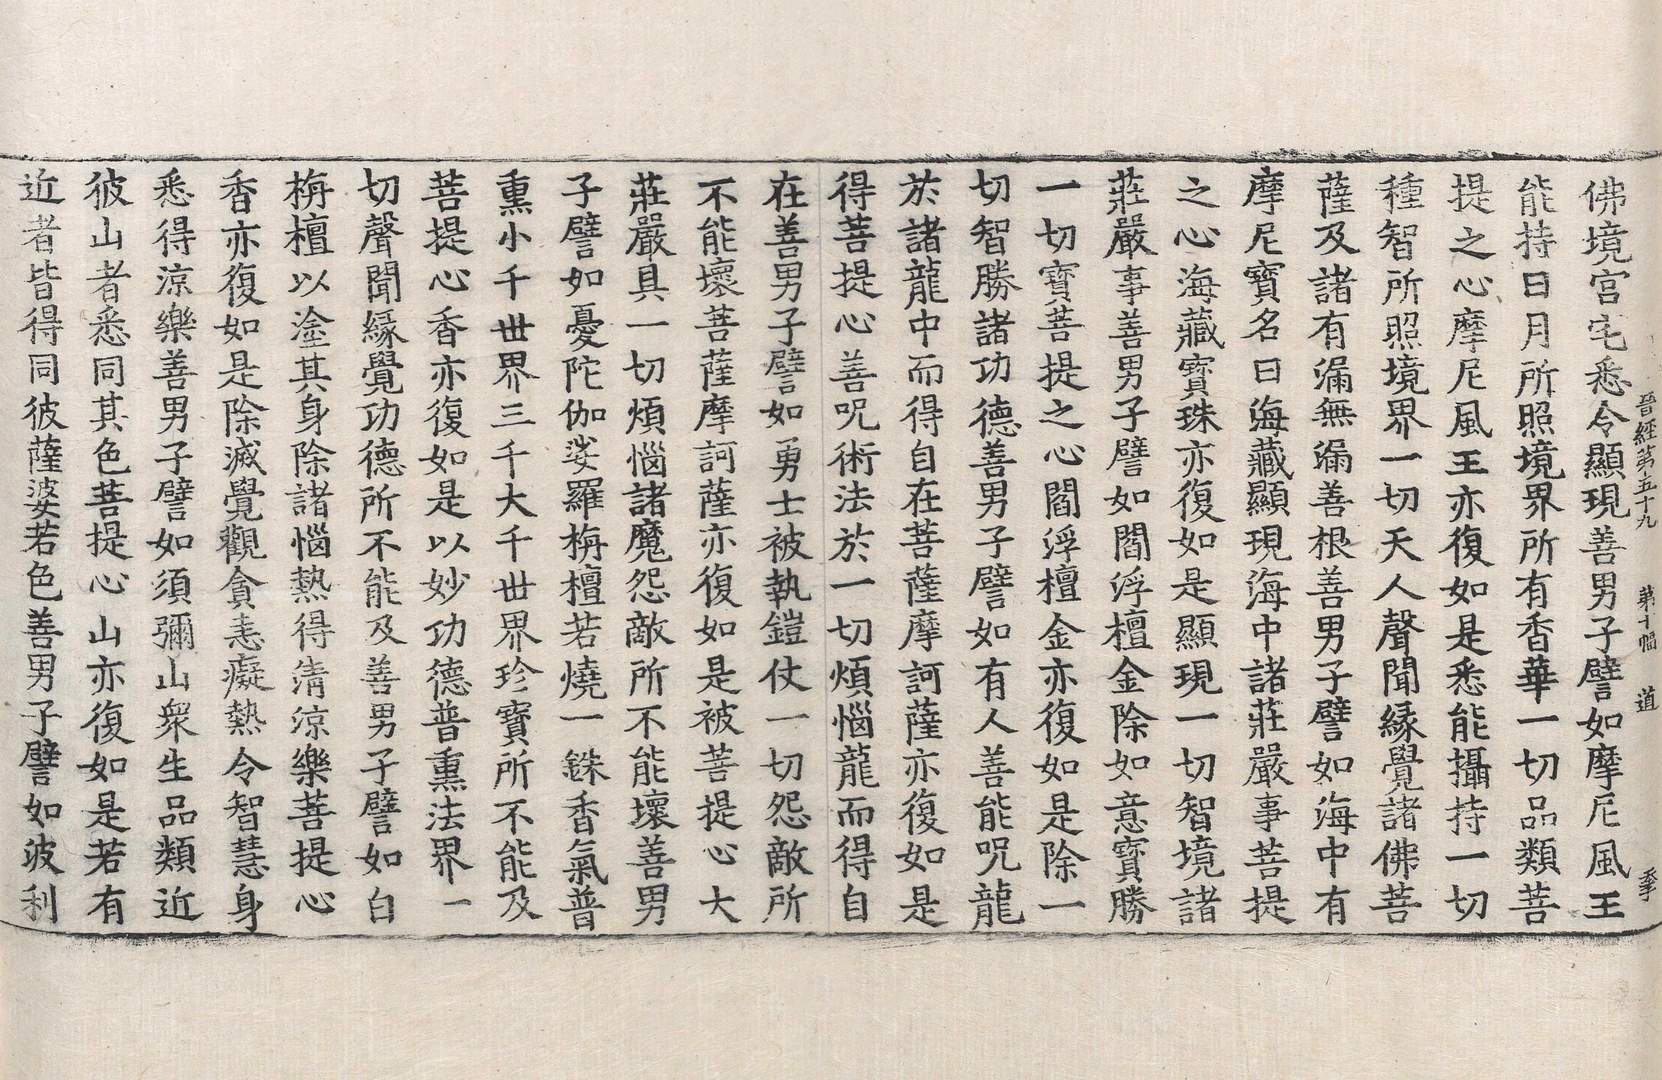 晉經第五十九　第十幅　道　秀
佛境宫宅悉令顯現善男子譬如摩尼風王
能持日月所照境界所有香華一切品類菩
提之心摩尼風王亦復如是悉能攝持一切
種智所照境界一切天人聲聞緣覺諸佛菩
薩及諸有漏無漏善根善男子譬如海中有
摩尼寶名曰海藏顯現海中諸莊嚴事菩提
之心海藏寶珠亦復如是顯現一切智境諸
莊嚴事善男子譬如閻浮檀金除如意寶勝
一切寶菩提之心閻浮檀金亦復如是除一
切智勝諸功德善男子譬如有人善能呪龍
於諸龍中而得自在菩薩摩訶薩亦復如是
得菩提心善呪術法於一切煩惱龍而得自
在善男子譬如勇士被執鎧仗一切怨敵所
不能壞菩薩摩訶薩亦復如是被菩提心大
莊嚴具一切煩惱諸魔怨敵所不能壞善男
子譬如憂陀伽娑羅栴檀若燒一銖香氣普
熏小千世界三千大千世界珍寶所不能及
菩提心香亦復如是以妙功德普熏法界一
切聲聞緣覺功德所不能及善男子譬如白
栴檀以塗其身除諸惱熱得清涼樂菩提心
香亦復如是除滅覺觀貪恚癡熱令智慧身
悉得涼樂善男子譬如須彌山衆生品類近
彼山者悉同其色菩提心山亦復如是若有
近者皆得同彼薩婆若色善男子譬如波利